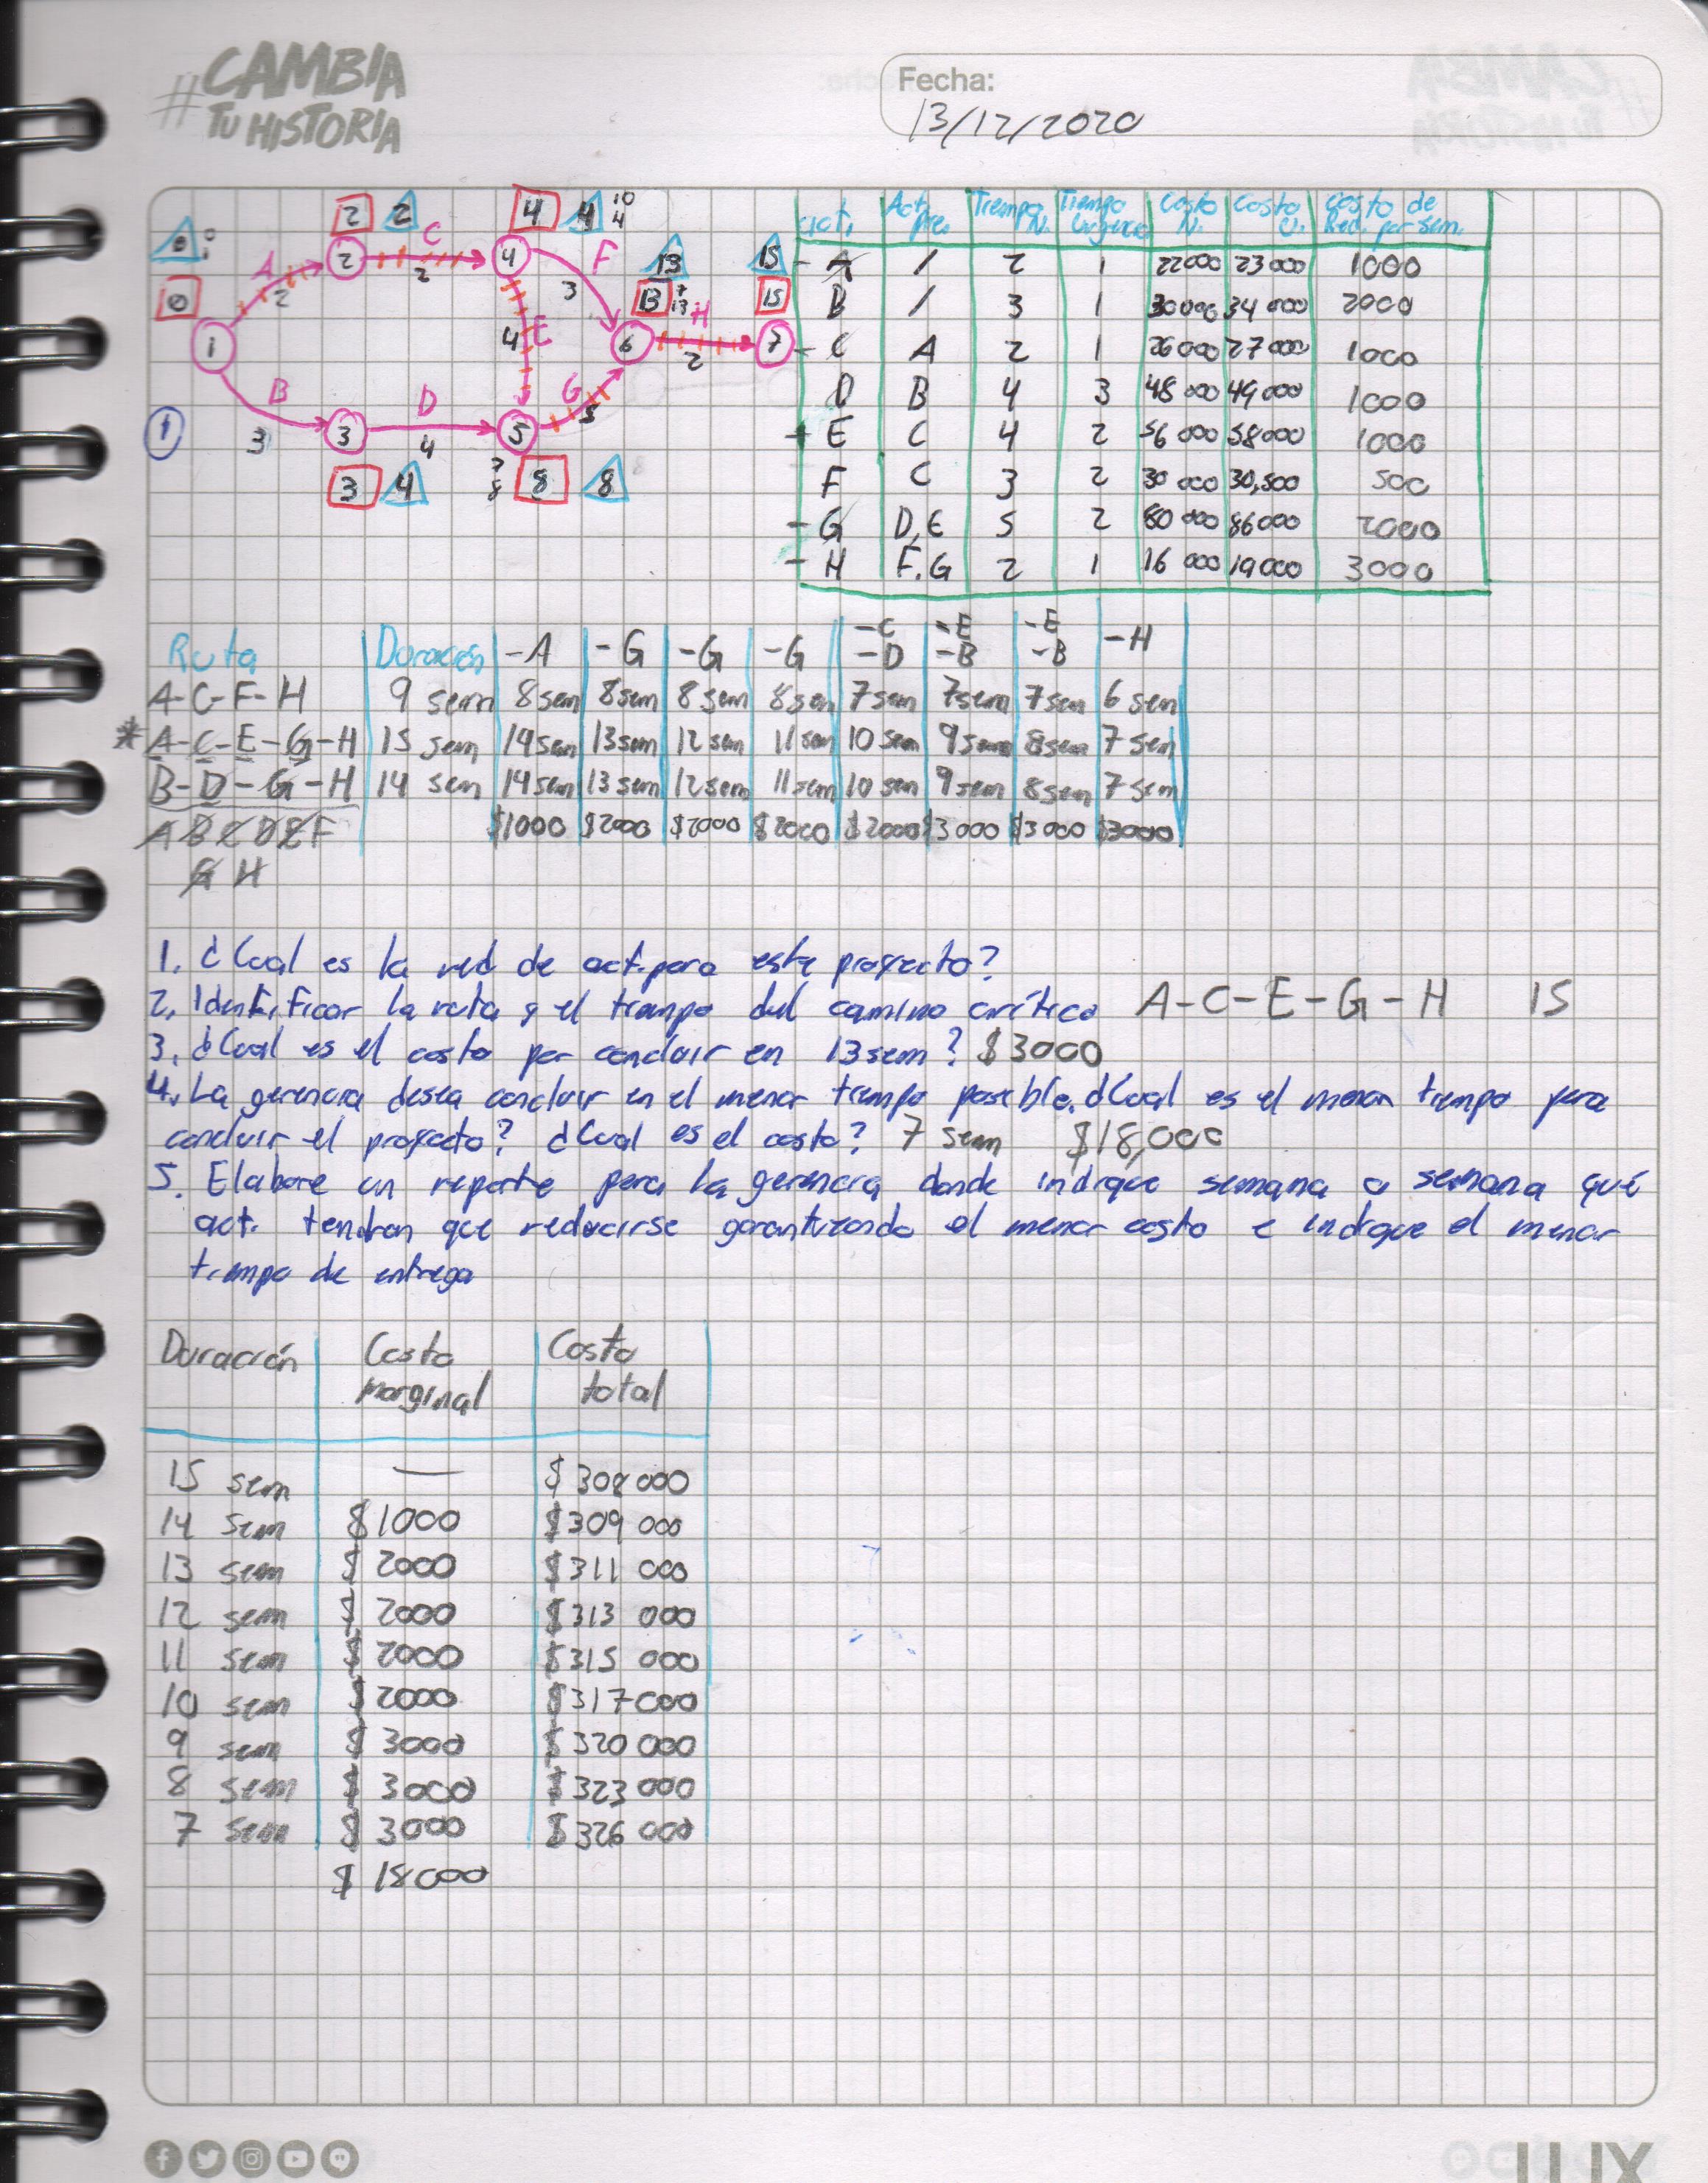 #CAMBIA
TU HISTORIA
Fecha:
13/12/2020
0 0
2 2 C 4 4 10
4
A 2 2 4 F
0 2 3 13 15
13 7 15
13 H
1 4 E 6 2 7
B D G 5
1 3 3 4 5
3 4 7
8 8 8
Act. Act. Pre. Tiempo N. Tiempo Urgencia Costo N. Costo U. Costo de Red. por sem.
- A / 2 1 22000 23000 1000
B / 3 1 30000 34000 2000
- C A 2 1 26000 27000 1000
D B 4 3 48000 49000 1000
+ E C 4 2 56000 58000 1000
F C 3 2 30000 30,500 500
- G D,E 5 2 80000 86000 2000
- H F.G 2 1 16000 19000 3000
Ruta Duración -A -G -G -G -C -D -E -B -E -B -H
A-C-F-H 9 sem 8 sem 8 sem 8 sem 8 sem 7 sem 7 sem 7 sem 6 sem
* A-C-E-G-H 15 sem 14 sem 13 sem 12 sem 11 sem 10 sem 9 sem 8 sem 7 sem
B-D-G-H 14 sem 14 sem 13 sem 12 sem 11 sem 10 sem 9 sem 8 sem 7 sem
A B C D E F $1000 $2000 $2000 $2000 $2000 $3000 $3000 $3000
G H
1. ¿Cual es la red de act. para este proyecto?
2. Identificar la ruta y el tiempo del camino crítico A-C-E-G-H 15
3. ¿Cual es el costo por concluir en 13 sem? $3000
4. La gerencia desea concluir en el menor tiempo posible. ¿Cual es el menor tiempo para
concluir el proyecto? ¿Cual es el costo? 7 sem $18,000
5. Elabore un reporte para la gerencia donde indique semana a semana qué
act. tendran que reducirse garantizando el menor costo e indique el menor
tiempo de entrega
Duración Costo marginal Costo total
15 sem — $308000
14 sem $1000 $309 000
13 sem $2000 $311 000
12 sem $2000 $313 000
11 sem $2000 $315 000
10 sem $2000 $317000
9 sem $3000 $320000
8 sem $3000 $323000
7 sem $3000 $326000
$18000